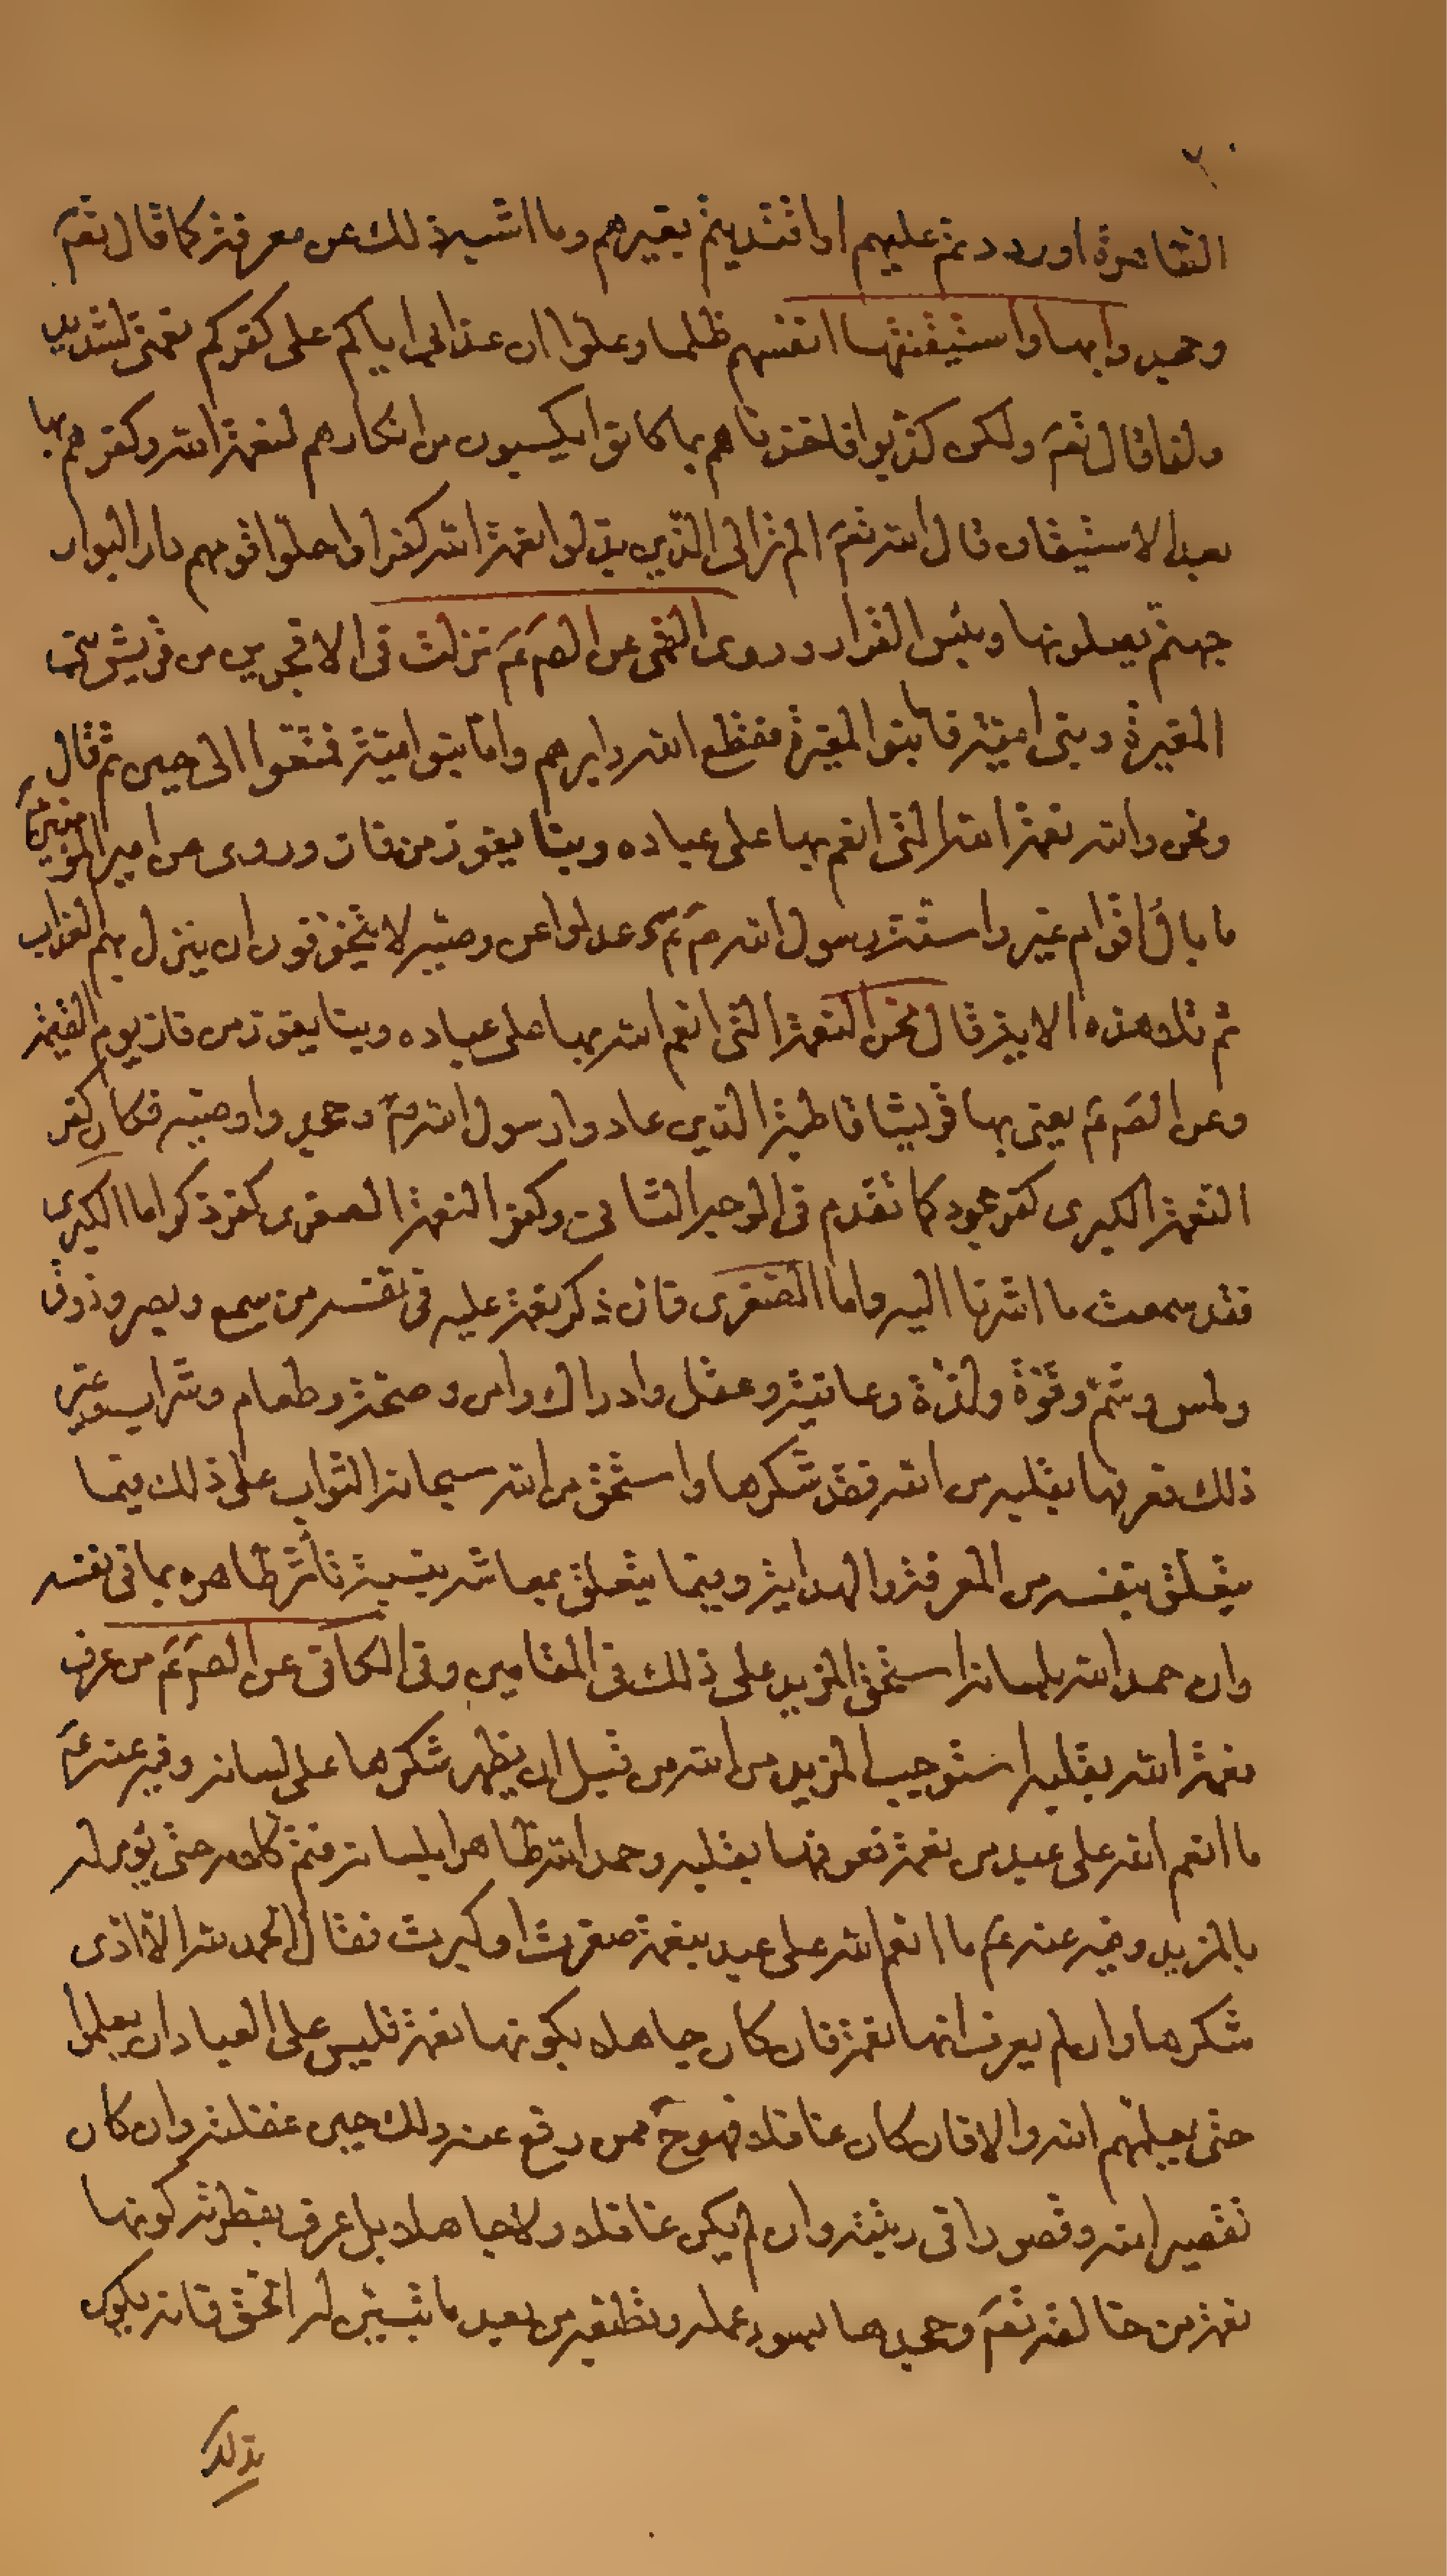 الظاهرة او رددتم عليهم او اقتديتم بغيرهم وما اشبه ذلك عن معرفة كما قال تعم
وجحدوا بها واستيقنتها انفسهم ظلما وعلوا ان عذابي اياكم على كفركم نعمتي لشديد
ولذا قال تعم ولكن كذبوا فاخذناهم بما كانوا يكسبون من انكارهم لنعمة الله وكفرهم بها
بعد الاستيقان قال الله تعم الم تر الى الذين بدلوا نعمة الله كفرا واحلوا قومهم دار البوار
جهنم يصلونها وبئس القرار وروى القمي عن الصم عم نزلت في الافجرين من قريش بني
المغيرة وبني امية فاما بنوا المغيرة فقطع الله دابرهم واما بنوا امية فمتعوا الى حين ثم قال
ونحن والله نعمة الله التي انعم بها على عباده وبنا يفوز من فاز وروى عن امير المؤمنين
ما بال اقوام غيروا سنة رسول الله صم وعدلوا عن وصيه لا يتخوفون ان ينزل بهم العذاب
ثم تلا هذه الاية ثم قال نحن النعمة التي انعم الله بها على عباده وبنا يفوز من فاز يوم القيمة
وعن الصم عم يعني بها قريشا قاطبة الذين عادوا رسول الله صم وجحدوا وصيه فكان كفر
النعمة الكبرى كفر جحود كما تقدم في الوجه الثاني وكفر النعمة الصغرى كفر ذكر اما الكبرى
فقد سمعت ما اشرنا اليه واما الصغرى فان ذكر نعمة عليه في نفسه من سمع وبصر وذوق
ولمس وشم وقوة ولذة وعافية وعقل وادراك وامن وصحة وطعام وشراب وغير
ذلك فعرفها بقلبه من الله فقد شكرها واستحق من الله سبحانه الثواب على ذلك فيما
يتعلق بنفسه من المعرفة والهداية وفيما يتعلق بمعاشه بنسبة تأثر ظاهره بما في نفسه
وان حمد الله بلسانه استحق المزيد على ذلك في المقامين وفي الكافي عن الصم عم من عرف
نعمة الله بقلبه استوجب المزيد من الله من قبل ان يظهر شكرها على لسانه وفيه عنه عم
ما انعم الله على عبد من نعمة فعرفها بقلبه وحمد الله ظاهرا بلسانه فتم كلامه حتى يؤمر له
بالمزيد وفيه عنه عم ما انعم الله على عبد بنعمة صغرت او كبرت فقال الحمد لله الا ادى
شكرها وان لم يعرف انها نعمة فان كان جاهلا بكونها نعمة فليس على العباد ان يعلموا
حتى يعلمهم الله والا فان كان غافلا فهوح ممن رفع عنه ذلك حين غفلته وان كان
تقصيرا منه وقصورا في رتبته وان لم يكن غافلا ولا جاهلا بل عرف بفطرته كونها
نعمة من خالقه تعم وجحدها بسوء عمله وتطبعه من بعد ما تبين له الحق فانه يكون
بذلك